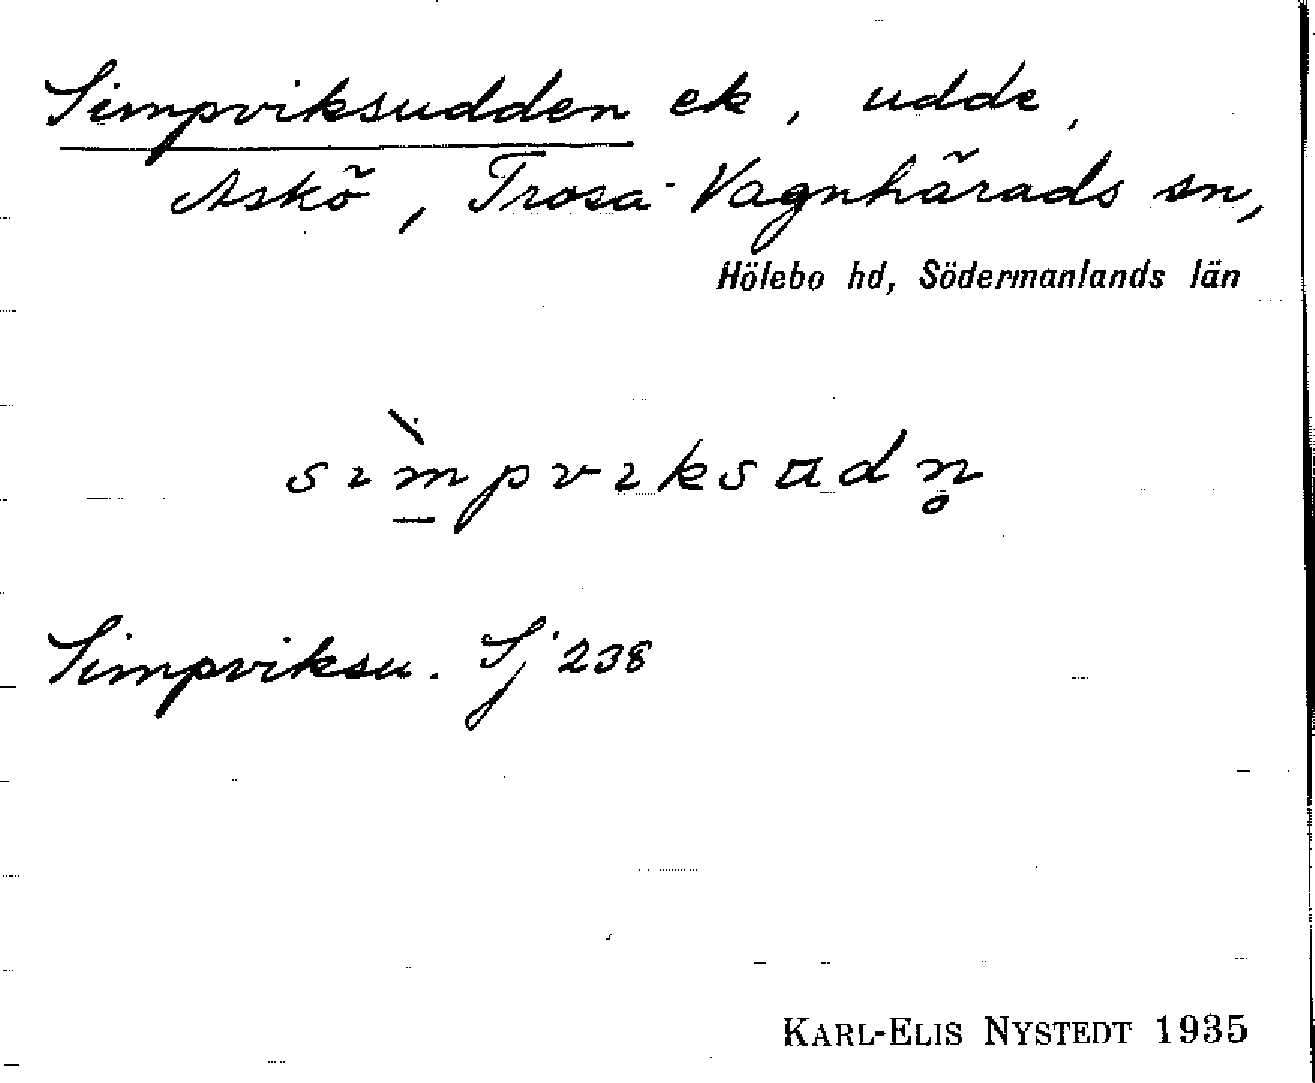 Simpviksudden ek, udde,
Askö, Trosa-Vagnhärads sn,
Hölebo hd, Södermanlands län
sìm̱pvıksɯdn̥
Simpviksu. Sj 238
KARL-ELIS NYSTEDT 1935